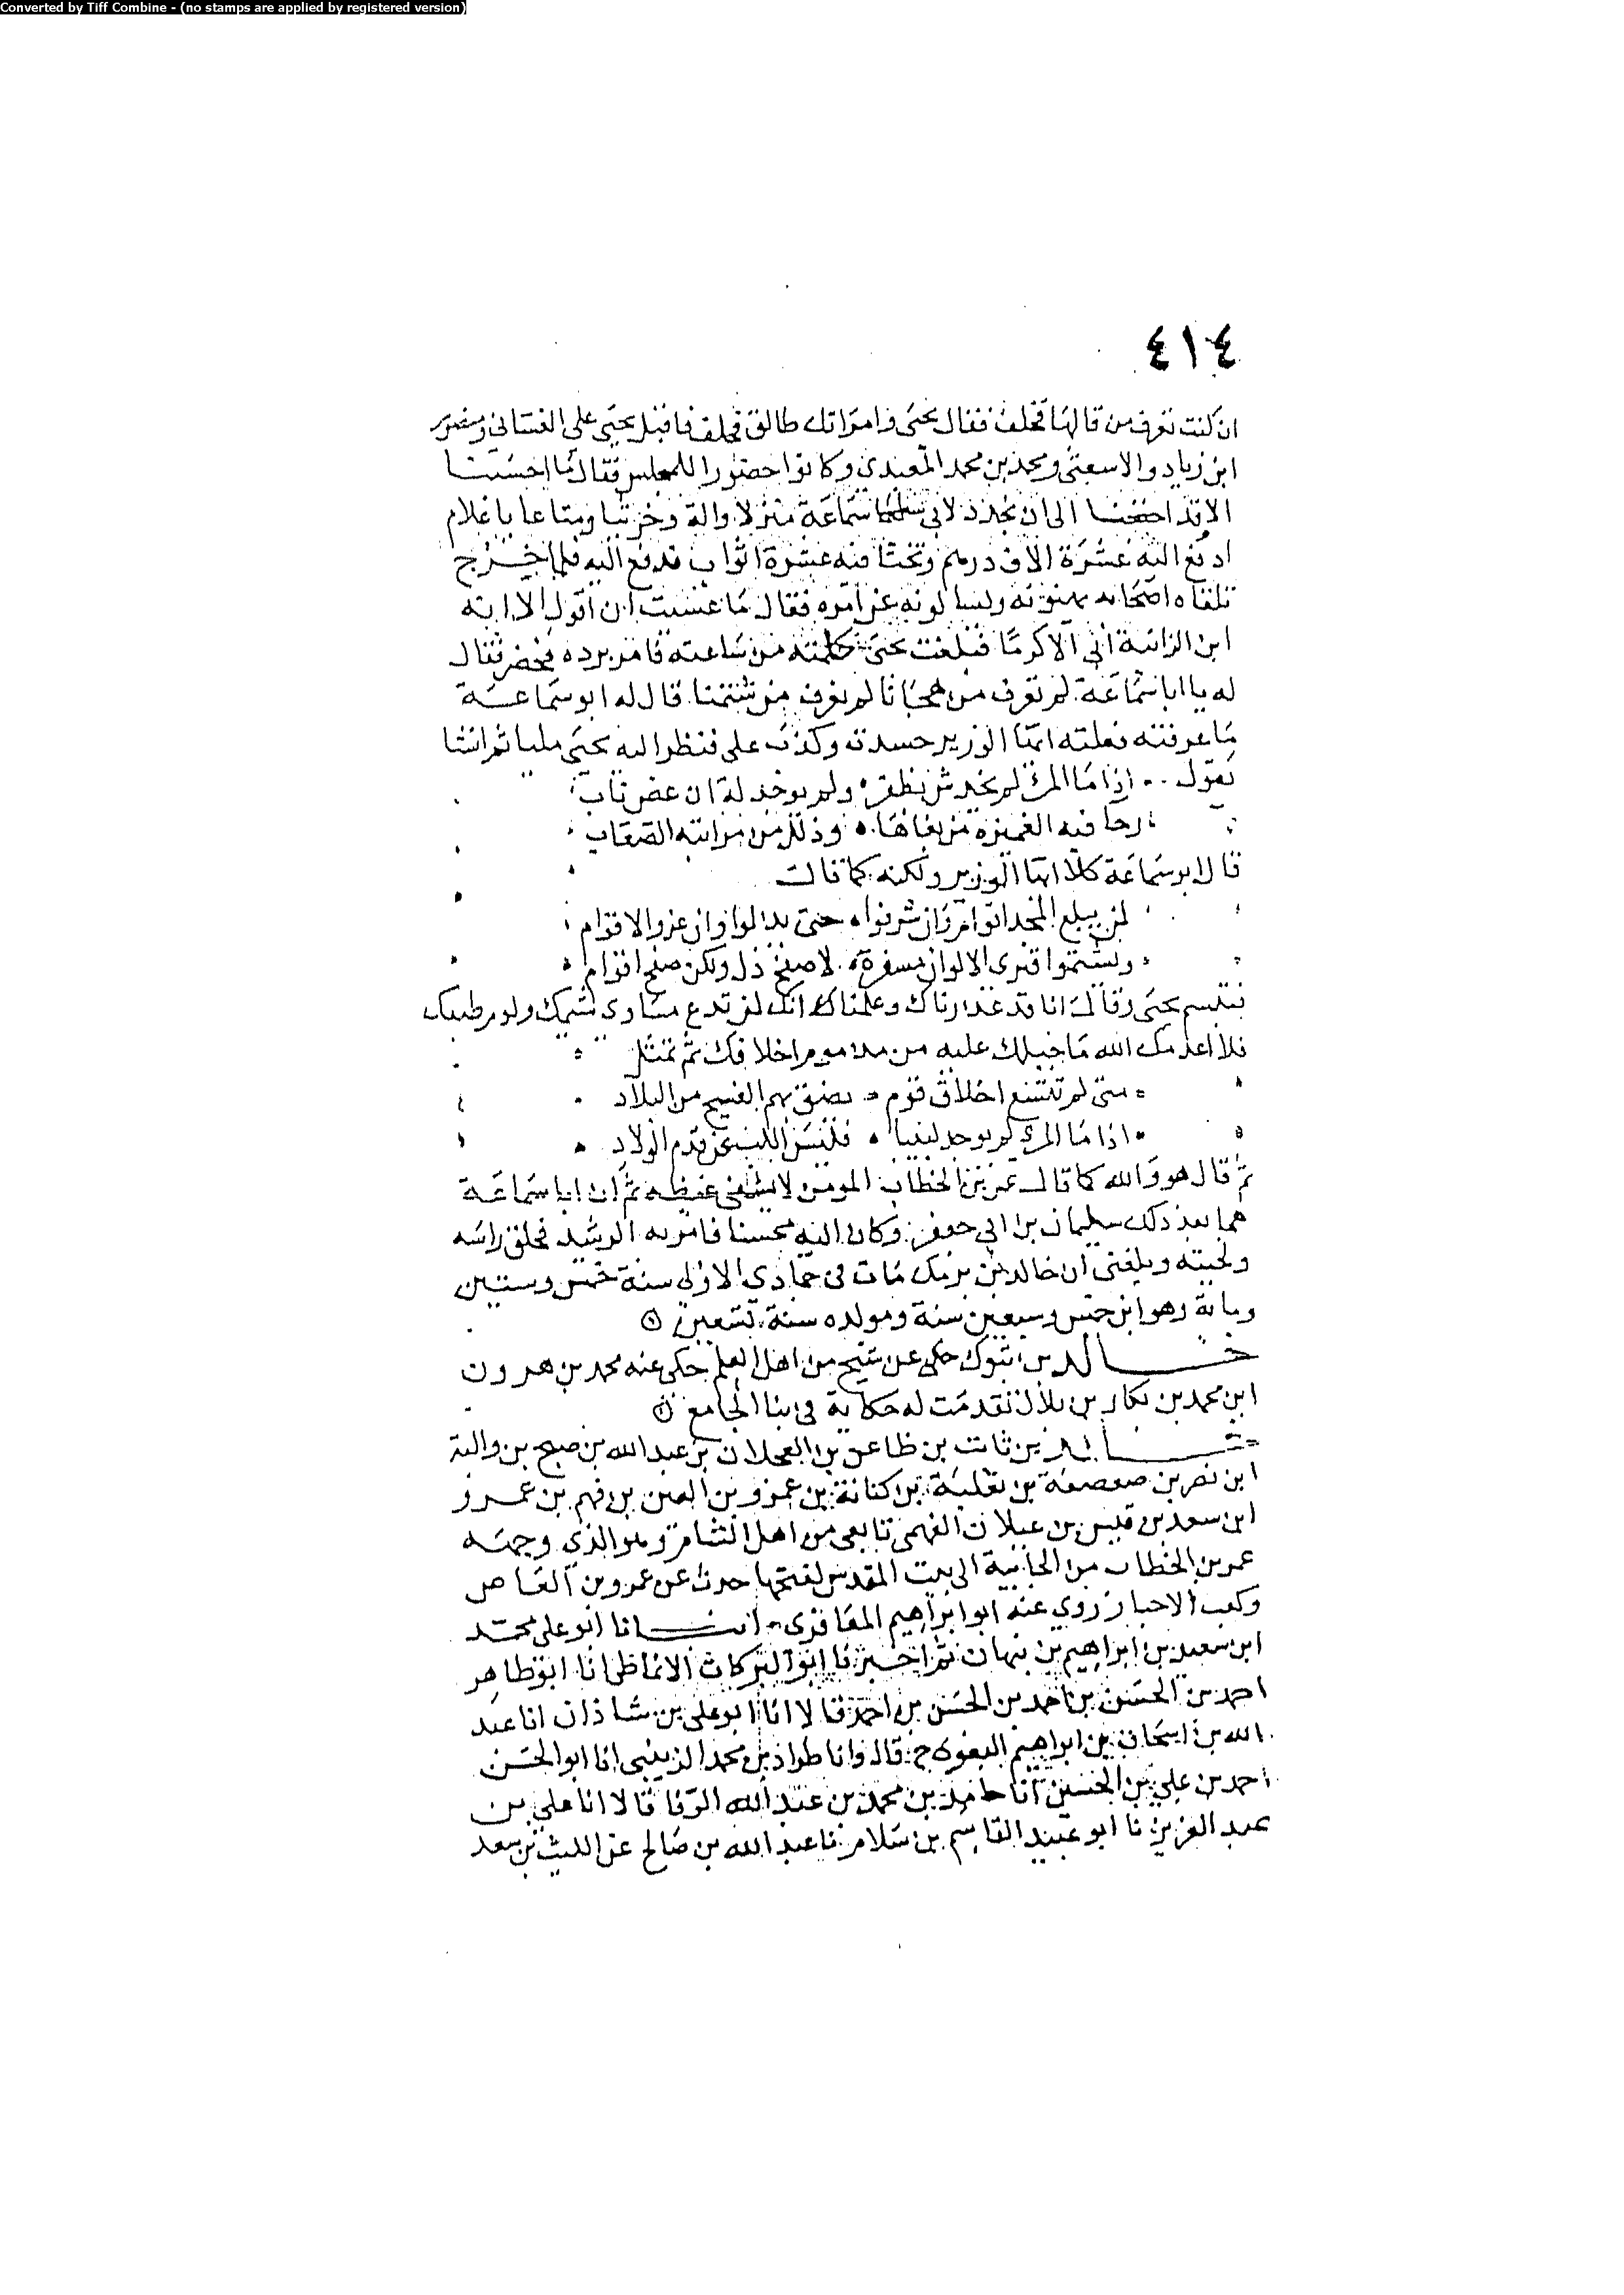 Converted by Tiff Combine - (no stamps are applied by registered version)
٤١٤
ان كنت تعرف من قالها فحلف فقال يحيى وامراتك طالق فحلف فاقبل يحيى على الغساني ومنصور
ابن زياد والاسعثي ومحمد بن محمد المعبدي وكانوا حضورا للمجلس فقال ما احسبنا
الا قد احتجنا الى ان نجدد لابي سماعة منزلا والة وخرثيا ومتاعا يا غلام
ادفع اليه عشرة الاف درهم وتختا فيه عشرة اثواب فدفع اليه فلما خرج
تلقاه اصحابه يهنونه ويسالونه عن امره فقال ما عسيت ان اقول الا انه
ابن الزانية ابى الا كرما فبلغت يحيى كلمته من ساعته فامر برده فحضر فقال
له يا ابا سماعة لم تعرف من هجانا لم تعرف من شتمنا قال له ابو سماعة
ما عرفته فعلته ايها الوزير حسدته وكذب علي فنظر اليه يحيى مليا ثم انشا
يقول اذا ما المرء لم يخدش بظفر ولم يوخذ له ان عض ناب
رجا فيه الغميزة من بغاها وذلل من مراتبه الصعاب
قال ابو سماعة كلا ايها الوزير ولكنه كما قال
لن يبلغ المجد اقوام وان شرفوا حتى يذلوا وان عزوا لاقوام
ويشتموا فترى الالوان مسفرة لا صفح ذل ولكن صفح اقوام
فتبسم يحيى وقال انا قد عذرناك وعلمنا انك لن تدع مساوي شيمك ولوم طبعك
فلا اعدمك الله ما جبلك عليه من مذموم اخلاقك ثم تمثل
متى لم تتسع اخلاق قوم يضق بهم الفسيح من البلاد
اذا ما المرء لم يوجد لبيبا فليس اللب عن قدم الولاد
ثم قال هو والله كما قال عمر بن الخطاب المومن لا يشفي غيظه ثم ان ابا سماعة
هجا بعد ذلك سليمان بن ابي جعفر وكان اليه محسنا فامر به الرشيد فحلق راسه
ولحيته وبلغني ان خالد بن برمك مات في جمادى الاولى سنة خمس وستين
وماية وهو ابن خمس وسبعين سنة ومولده سنة تسعين
خالد بن تبوك حكى عن شيخ من اهل العلم حكى عنه محمد بن هرون
ابن محمد بن بكار بن بلال تقدمت له حكاية في بنا الجامع
خالد بن ثابت بن ظاعن بن العجلان بن عبد الله بن صبح بن والبة
ابن نصر بن صعصعة بن ثعلبة بن كنانة بن عمرو بن القين بن فهم بن عمرو
ابن سعد بن قيس بن عيلان الفهمي تابعي من اهل الشام وهو الذي وجهه
عمر بن الخطاب من الجابية الى بيت المقدس لفتحها حدث عن عمرو بن العاص
وكعب الاحبار روى عنه ابو ابراهيم المعافري انبانا ابو علي محمد
ابن سعيد بن ابراهيم بن نبهان ثم اخبرنا ابو البركات الانماطي انا ابو طاهر
احمد بن الحسن بن احمد بن الحسن بن احمد قالا انا ابو علي بن شاذان انا عبد
الله بن اسحاق بن ابراهيم البغوي ح قال وانا طراد بن محمد الزينبي انا ابو الحسن
احمد بن علي بن الحسين انا حامد بن محمد بن عبد الله الرفا قالا انا علي بن
عبد العزيز نا ابو عبيد القاسم بن سلام نا عبد الله بن صالح عن الليث بن سعد